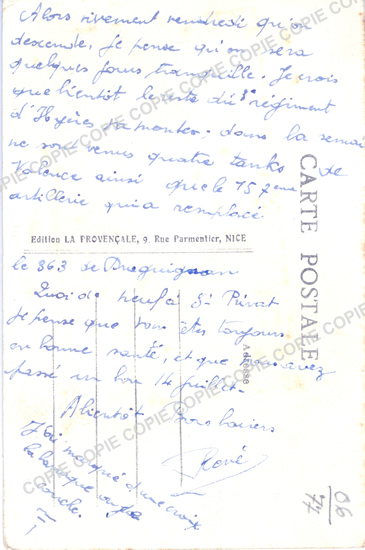 Alors vivement vendredi qu'on
descende, je pense qu'on sera
quelques jours tranquille. Je crois
que bientôt le reste du 3e régiment
d'Hyères va monter; dans la semai
ne sont venus quatre tanks de
Valence ainsi que le 75 ème
artillerie qui a remplacé
Edition LA PROVENÇALE, 9, Rue Parmentier, NICE
le 363 de Draguignan
Quoi de neuf à St Privat
je pense que vous êtes toujours
en bonne santé, et que vous avez
passé un bon 14 juillet.
A bientôt bons baisers
René
J'ai marqué d'une croix
la baraque où je
couche.
CARTE POSTALE
Adresse
06
77
COPIE COPIE COPIE COPIE